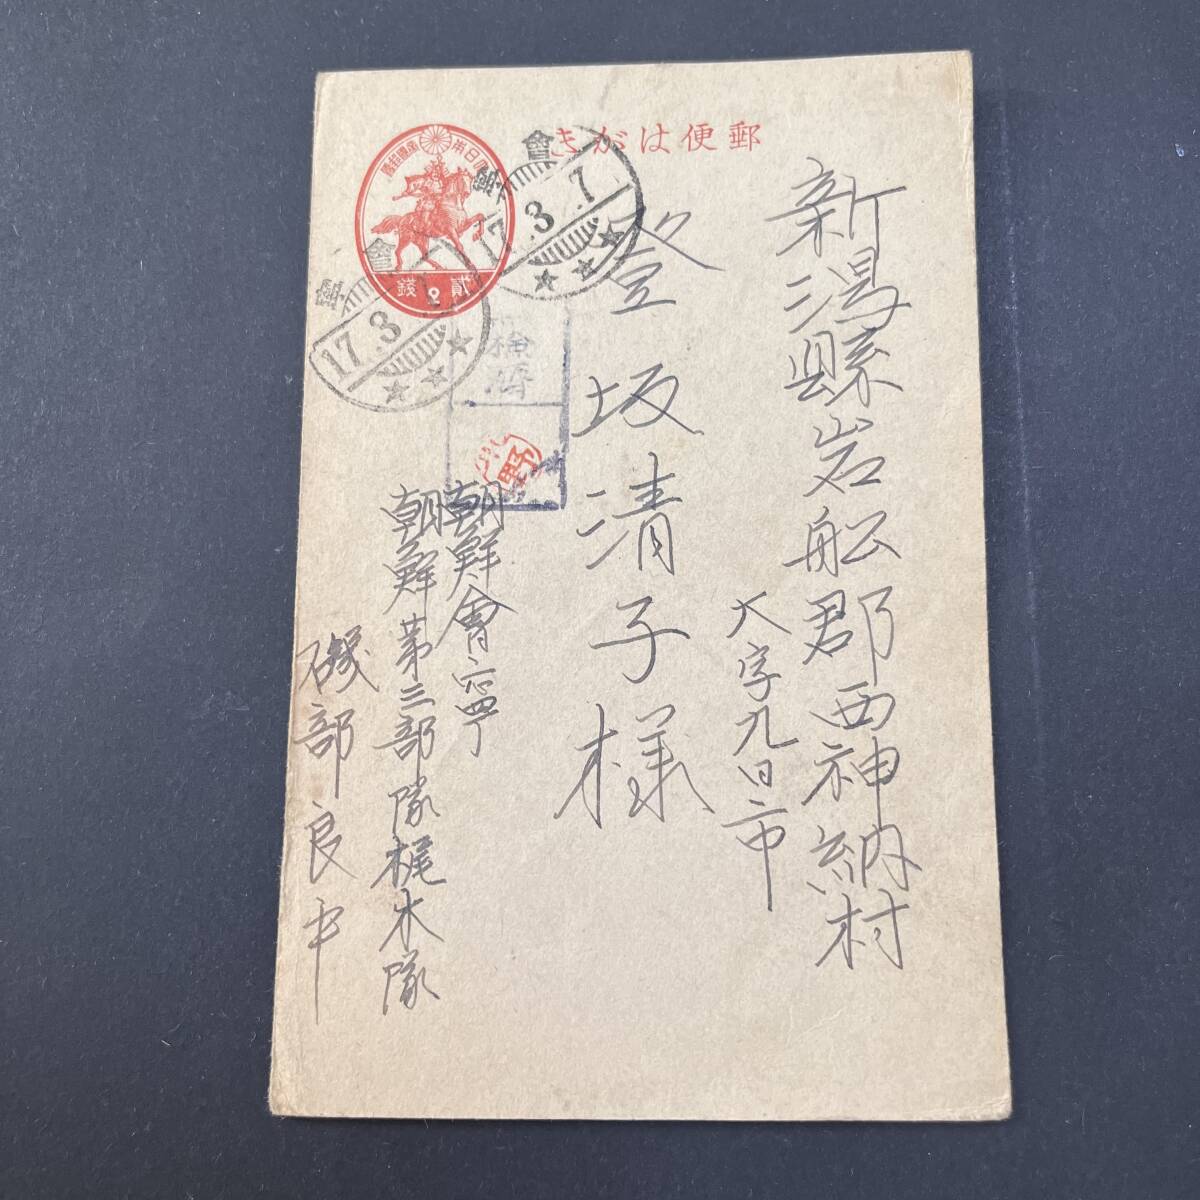 郵便はがき
大日本帝國郵便
貳錢
會寧
17.3.7
會寧
17.3.7
検済
新潟縣岩船郡西神納村
大字九日市
登坂清子様
朝鮮會寧
朝鮮第三部隊梶木隊
磯部良中